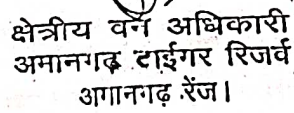 क्षेत्रीय वन अधिकारी
अमानगढ़ टाईगर रिजर्व
अगानगढ़ रेंज।